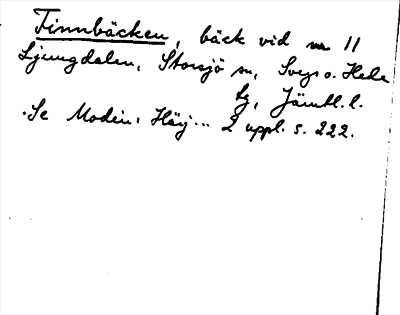 Finnbäcken, bäck vid nr 11
Ljungdalen, Storsjö sn, Svegs o. Hede
tg, Jämtl. l.
Se Modin: Härj... 2 uppl. s. 222.